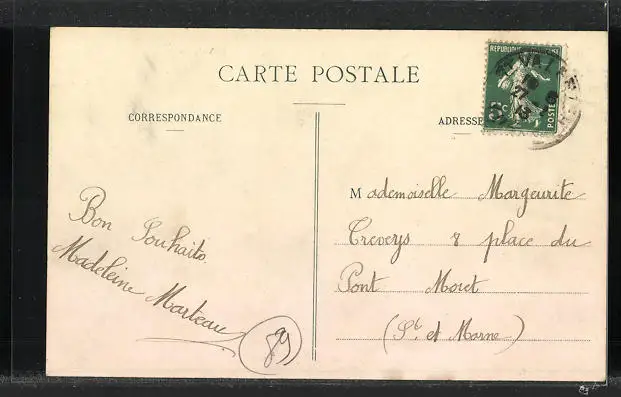 CARTE POSTALE
CORRESPONDANCE
ADRESSE
REPUBLIQUE
POSTES
5c
Bon Souhaits
Madeleine Marteau
89
Mademoiselle Margeurite
Treveys 8 place du
Pont Moret
(S.t et Marne)